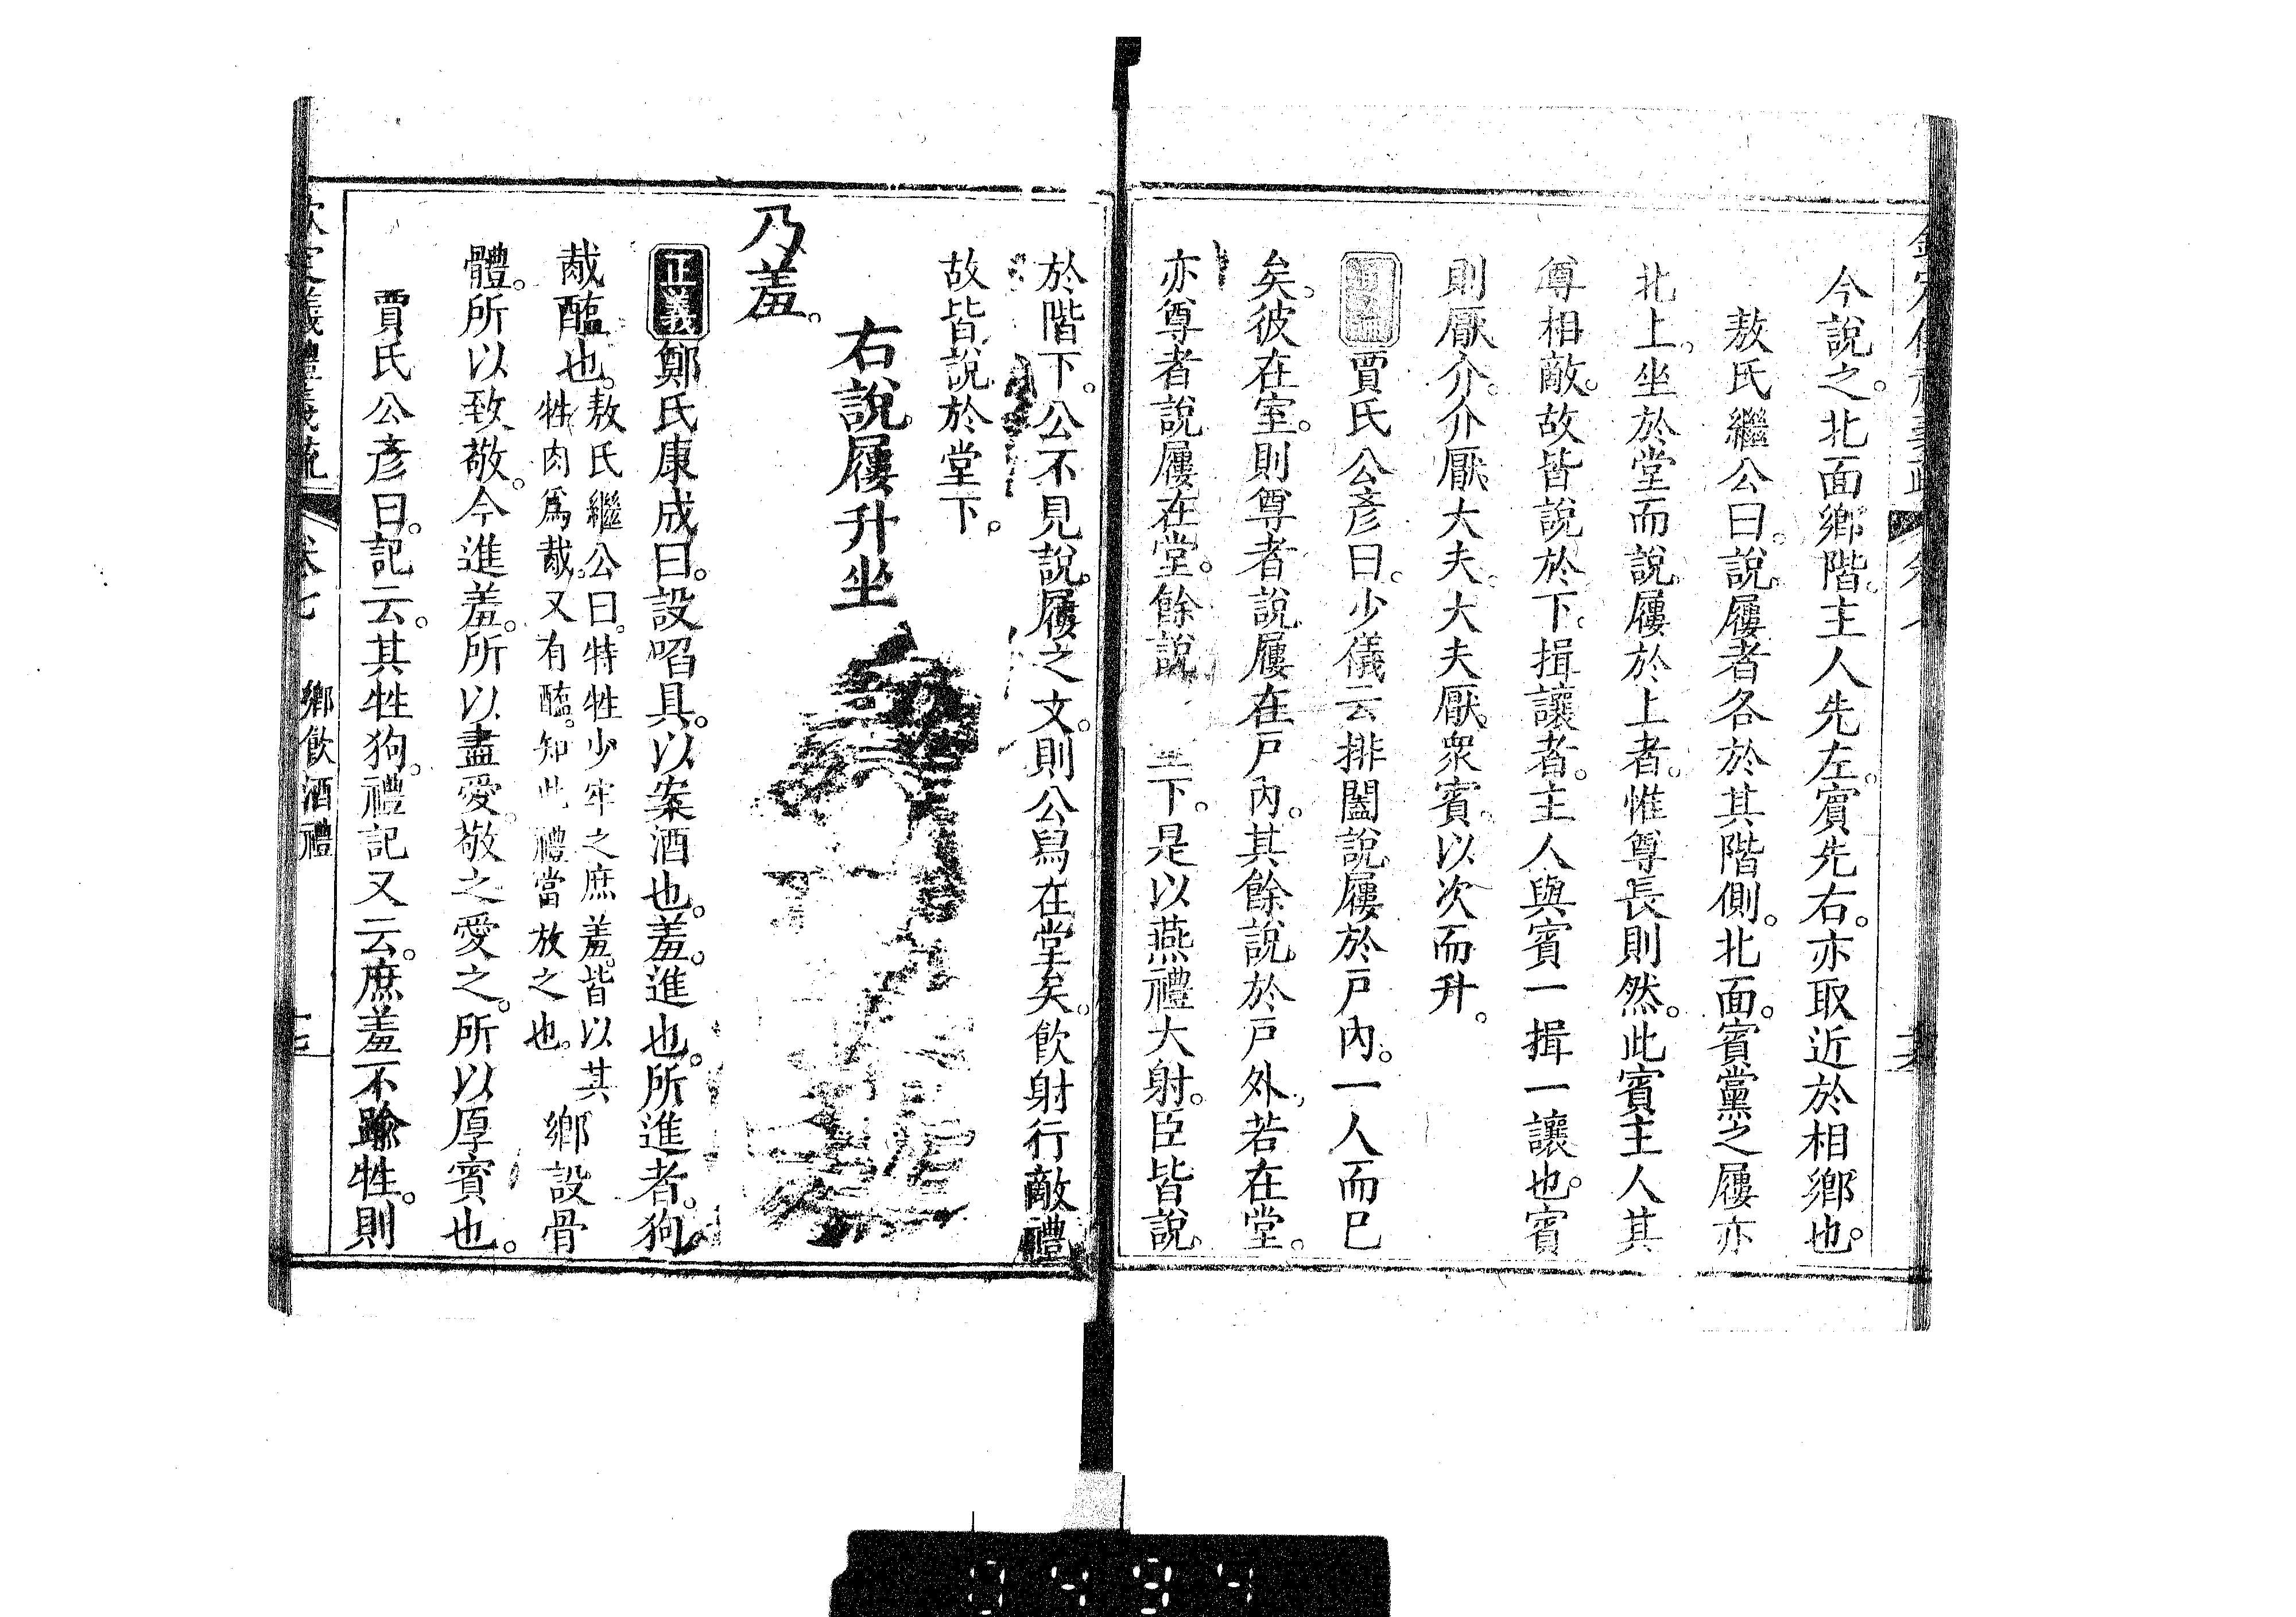 今說之北面鄉階主人先左賓先右亦取近於相鄉也
敖氏繼公曰說屨者各於其階側北面賓黨之屨亦
北上坐於堂而說屨於上者惟尊長則然此賓主人其
尊相敵故皆說於下揖讓者主人與賓一揖一讓也賓
則厭介介厭大夫大夫厭衆賓以次而升
賈氏公彥曰少儀云排闔說屨於戸內一人而已
矣彼在室則尊者說屨在戸內其餘說於戸外若在堂
亦尊者說屨在堂餘說 下是以燕禮大射臣皆說
於階下公不見說屨之文則公舄在堂矣飲射行敵禮
故皆說於堂下
右說屨升坐
乃羞
正義鄭氏康成曰設啗具以案酒也羞進也所進者狗
胾醢也敖氏繼公曰特牲少牢之庶羞皆以其
牲肉爲胾又有醢知此禮當放之也
鄉設骨
體所以致敬今進羞所以盡愛敬之愛之所以厚賓也
賈氏公彥曰記云其牲狗禮記又云庶羞不踰牲則
欽定儀禮義疏 卷七 鄉飲酒禮